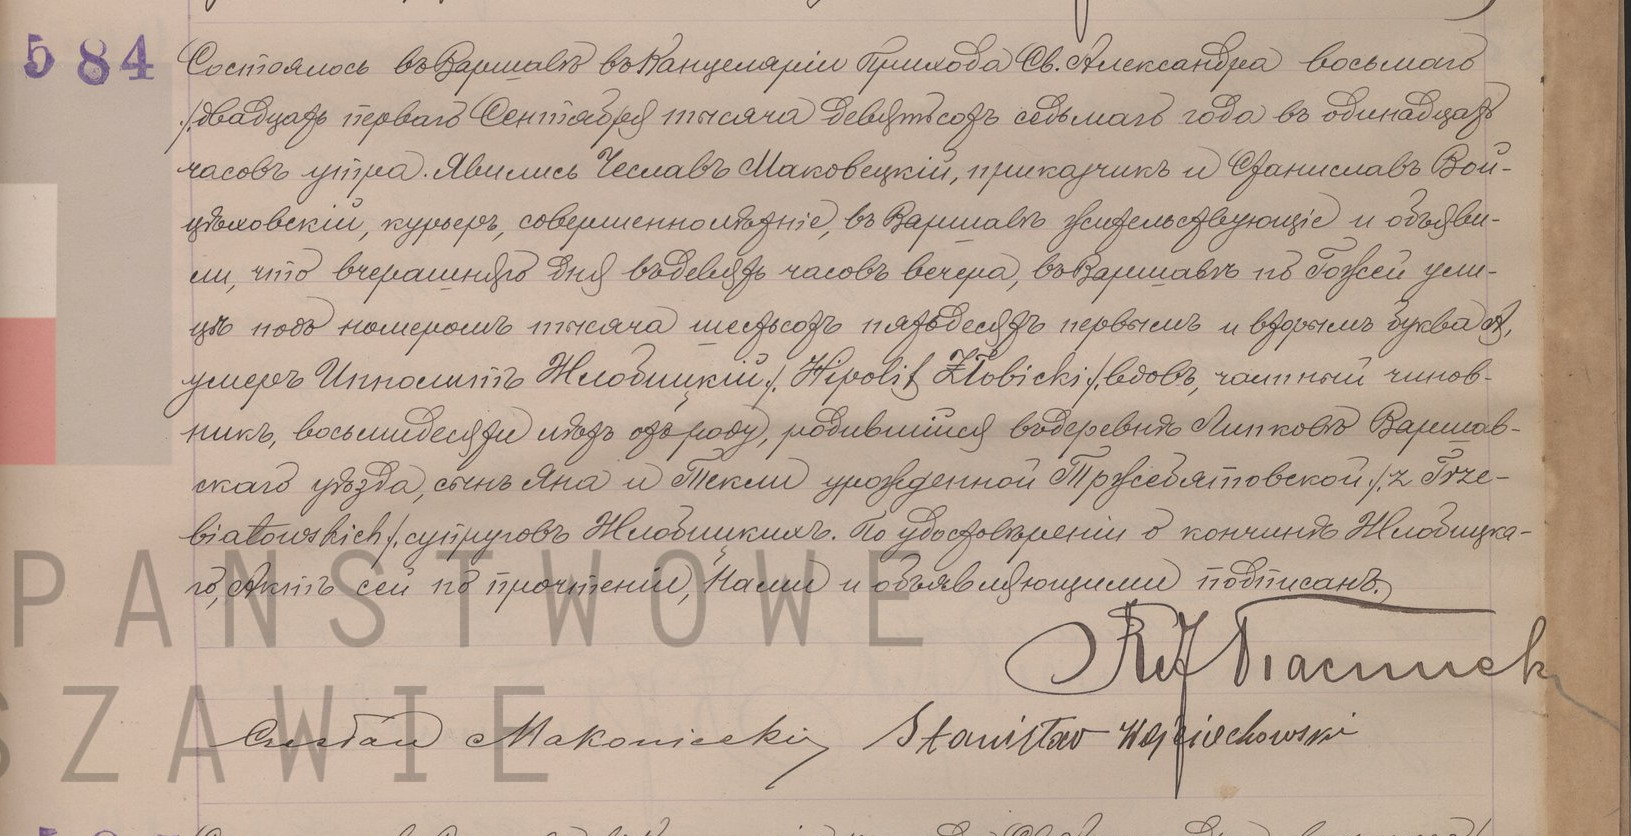 584
Состоялось въ Варшавѣ въ Канцеляріи Прихода Св. Александра восьмаго
/двадцать перваго/ Сентября тысяча девятьсотъ седьмаго года въ одинадцать
часовъ утра. Явились Чеславъ Маковецкій, прикащикъ и Станиславъ Вой-
цѣховскій, курьеръ, совершеннолѣтніе, въ Варшавѣ жительствующіе и объяви-
ли, что вчерашняго дня въ девять часовъ вечера, въ Варшавѣ по Гожей ули-
цѣ подъ номеромъ тысяча шестьсотъ пятьдесятъ первымъ и вторымъ буква А,
умеръ Ипполитъ Жлобицкій /. Hipolit Żłobicki ./ вдовъ, частный чинов-
никъ, восьмидесяти лѣтъ отъ роду, родившійся въ деревнѣ Липковѣ Варшав-
скаго уѣзда, сынъ Яна и Текли урожденной Тржебятовской /. z Trze-
biatowskich ./ супруговъ Жлобицкихъ. По удостовѣреніи о кончинѣ Жлобицка-
го, Актъ сей по прочтеніи, Нами и объявляющими подписанъ.
Czesław Makowiecki Stanisław Wojciechowski
PAŃSTWOWE
SZAWIE